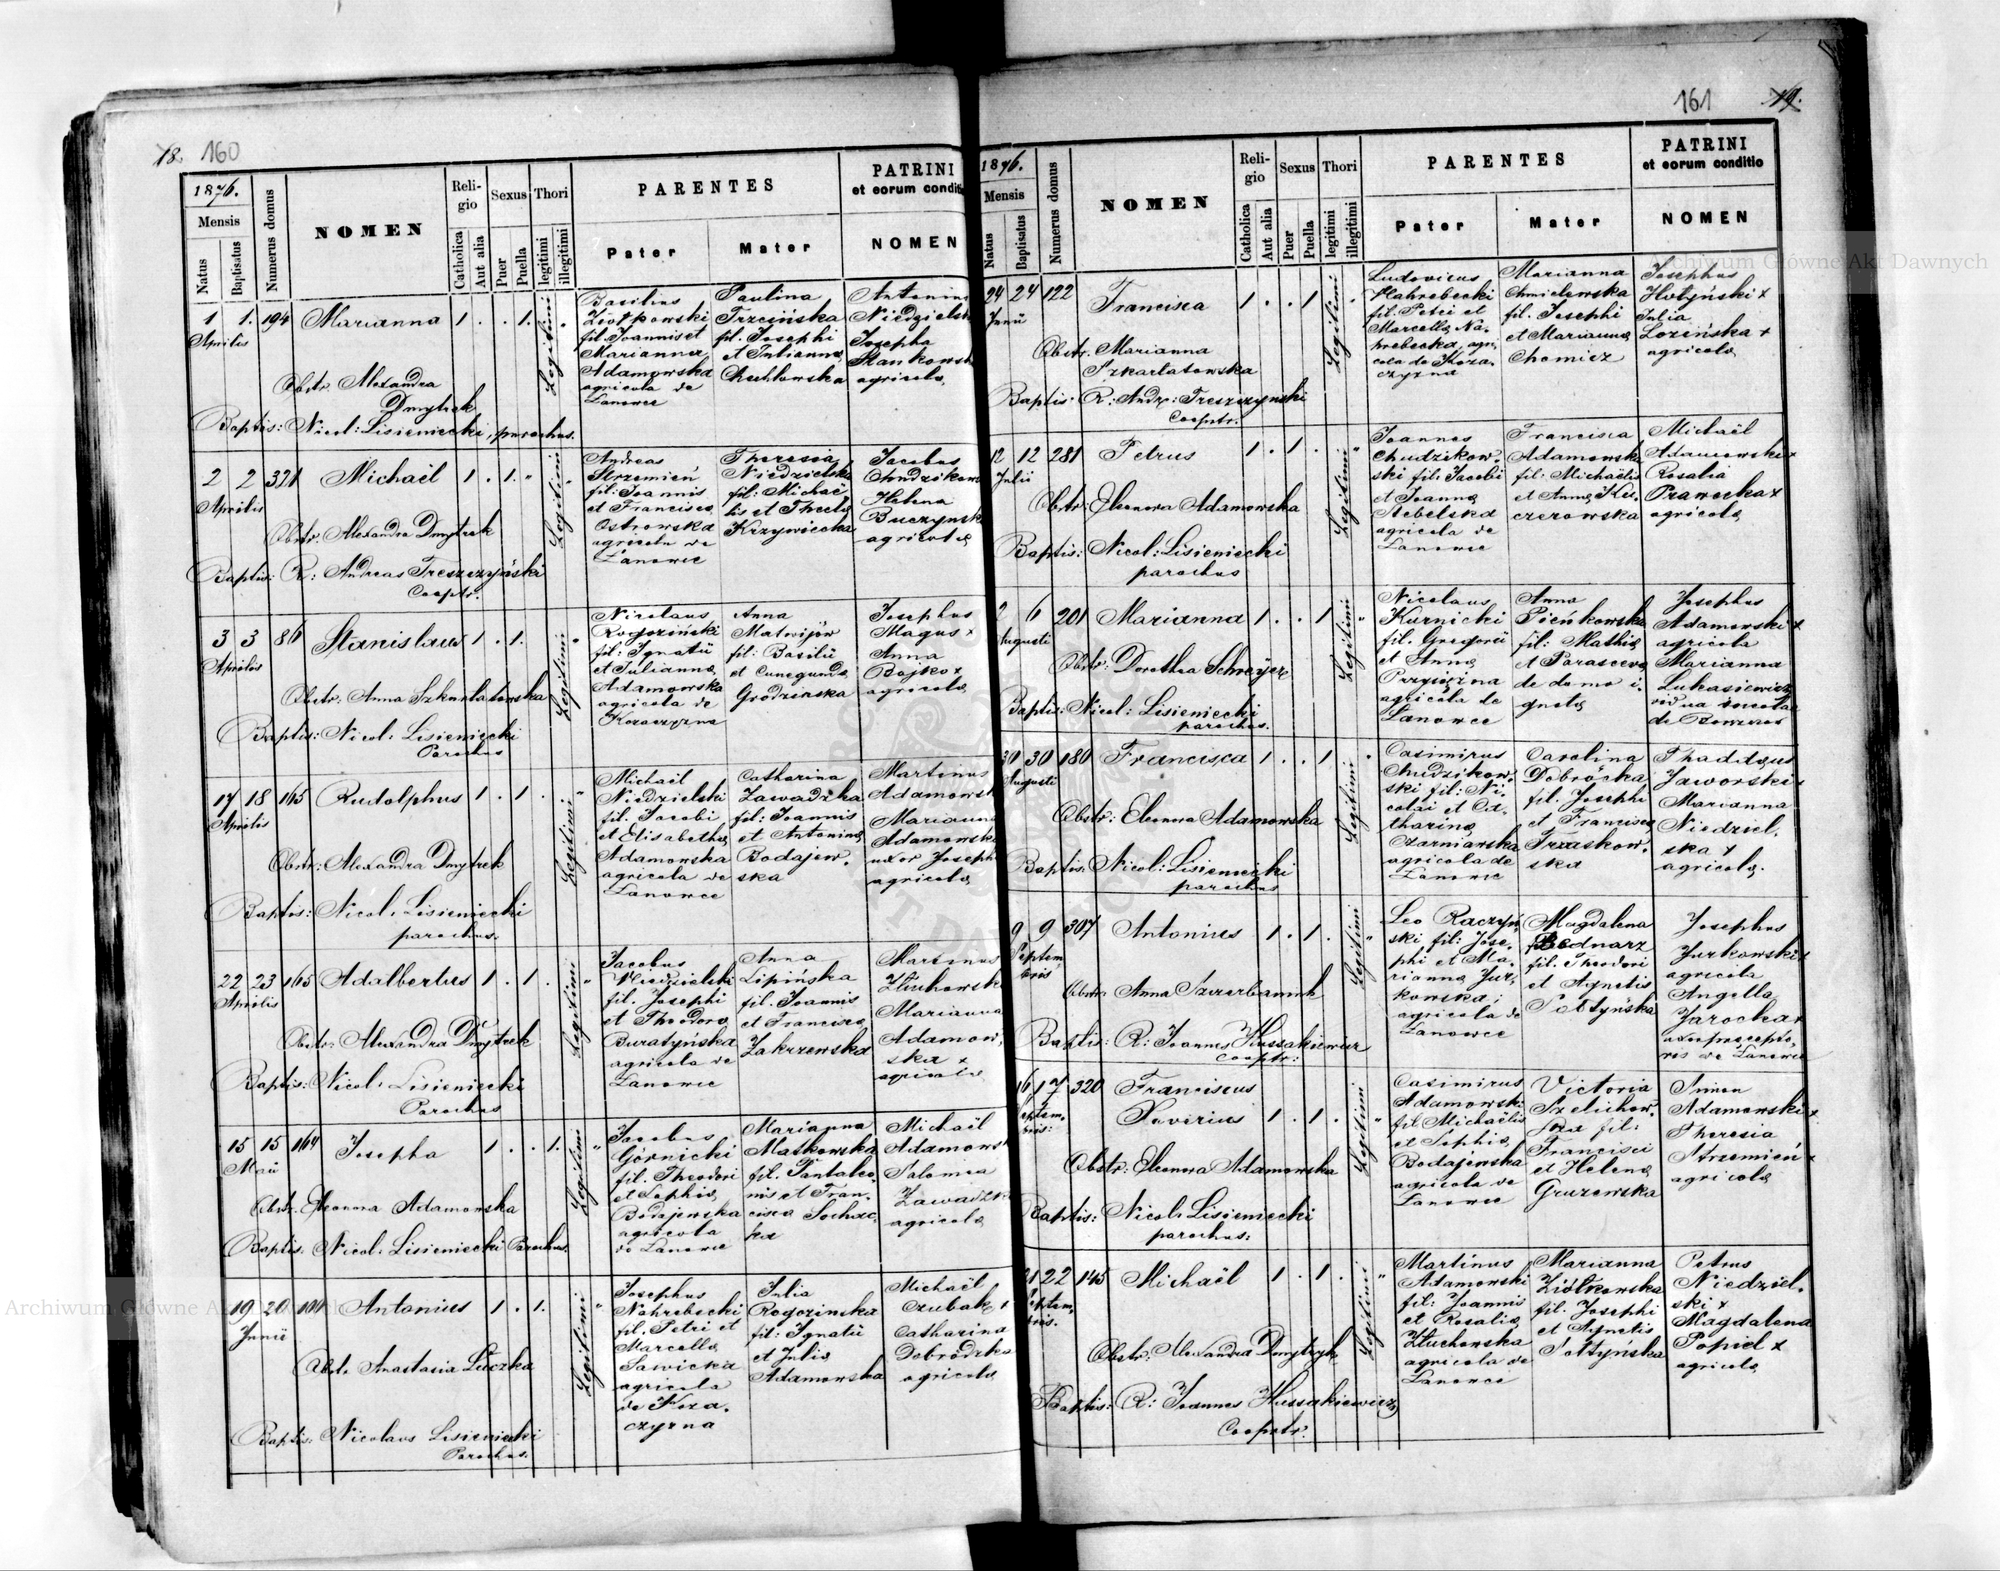 18. 160
1876.
Mensis
Natus
Baptisatus
Numerus domus
NOMEN
Reli-
gio
Catholica
Aut alia
Sexus
Puer
Puella
Thori
legitimi
illegitimi
PARENTES
Pater
Mater
PATRINI
et eorum conditio
NOMEN
1 1. 194 Marianna 1 . . 1.
Aprilis
Legitimi
Obstr. Alexandra
Dmytrek
Baptis: Nicol: Lisieniecki, parochus.
Basilius
Ziółkowski
fil. Joannis et
Marianna
Adamowska
agricola de
Lanowce
Paulina
Trzcińska
fil. Josephi
et Julianna
Chechłowska
Antonius
Josepha
agricola
2 2 321 Michaël 1 . 1. "
Aprilis
Legitimi
Obstr. Alexandra Dmytrek
Baptis: R: Andreas Treszczyński
Cooptr.
Andreas
Strzemień
fil: Joannis
et Francisca
Ostrowska
agricola de
Lanowce
Theresia
Niedzielska
fil: Michaë
lis et Thecla
Krzywiecka
Jacobus
Helena
agricola
3 3 86 Stanislaus 1 . 1.
Aprilis
Legitimi
Obstr: Anna Szkarłatowska
Baptis: Nicol: Lisieniecki
Parochus
Nicolaus
Rogoziński
fil: Ignatii
et Julianna
Adamowska
agricola de
Kozaczyzna
Anna
Matwijów
fil: Basilii
et Cunegunda
Grodzinska
Josephus
Magus x
Anna
Bojko x
agricola
17 18 165 Rudolphus 1 . 1
Aprilis
Legitimi
Obstr: Alexandra Dmytrek
Baptis: Nicol. Lisieniecki
parochus.
Michaël
Niedzielski
fil. Jacobi
et Elisabetha
Adamowska
agricola de
Lanowce
Catharina
Zawadzka
fil: Joannis
et Antonina
Bodajew.
ska
Martinus
Marianna
uxor Joseph
agricola
22 23 165 Adalbertus 1 . 1.
Aprilis
Legitimi
Obstr: Alexandra Dmytrek
Baptis: Nicol. Lisieniecki
Parochus
Jacobus
Niedzielski
fil. Josephi
et Theodora
Buratyńska
agricola de
Lanowce
Anna
Lipińska
fil. Joannis
et Francisca
Zakrzewska
Martinus
Marianna
Adamow.
ska x
agricola
15 15 164 Josepha 1 . . 1.
Maii
Legitimi
Obstr. Eleonora Adamowska
Baptis. Nicol. Lisieniecki Parochus.
Jacobus
Górnicki
fil. Theodori
et Sophia
Bodajewska
agricola
de Lanowce
Marianna
Matkowska
fil. Pantaleo
nis et Fran.
cisca Sochac.
ka
Michaël
Salomea
agricola
19 20 Antonius 1 . 1.
Junii
Legitimi
Obstr. Anastasia Luczka
Baptis: Nicolaus Lisieniecki
Parochus.
Josephus
Nahrebecki
fil. Petri et
Marcella
Sawicka
agricola
de Koza.
czyzna
Julia
Rogozinska
fil: Ignatii
et Julia
Adamowska
Michaël
Czubak x
Catharina
Dobrodzka
agricola
161 19.
1876.
Mensis
Natus
Baptisatus
Numerus domus
NOMEN
Reli-
gio
Catholica
Aut alia
Sexus
Puer
Puella
Thori
legitimi
illegitimi
PARENTES
Pater
Mater
PATRINI
et eorum conditio
NOMEN
24 24 122 Francisca 1 . . 1
Junii
Legitimi
Obstr. Marianna
Szkarłatowska
Baptis. R: Andr: Treszczynski
Cooptr.
Ludovicus
Nahrebecki
fil. Petri et
Marcella Na.
hrebecka, agri.
cola de Koza.
czyzna
Marianna
Chmielewska
fil. Josephi
et Marianna
Chomicz
Josephus
Hołyński x
Julia
Lozińska x
agricola
12 12 281 Petrus 1 . 1 .
Julii
Legitimi
Obstr: Eleonora Adamowska
Baptis: Nicol: Lisieniecki
parochus
Joannes
Chudzikow.
ski fil: Jacobi
et Joanna
Stebelska
agricola de
Lanowce
Francisca
Adamowska
fil: Michaëlis
et Anna Ku.
czerowska
Michaël
Adamowski x
Rosalia
agricola
2 6 201 Marianna 1 . . 1
Augusti
Legitimi
Obstr: Dorothea Schweÿer
Baptis: Nicol: Lisieniecki
parochus.
Nicolaus
Kurnicki
fil. Gregorii
et Anna
agricola de
Lanowce
Anna
Pieńkowska
fil: Mathia
et Parasceva
de domo i.
gnota
Josephus
Adamowski x
agricola
Marianna
Lukasiewicz
vidua incola
de
30 30 180 Francisca 1 . . 1
Augusti
Legitimi
Obstr: Eleonora Adamowska
Baptis: Nicol: Lisieniecki
parochus
Casimirus
Chudzikow.
ski fil: Ni.
colai et Ca.
tharina
Czarniawska
agricola de
Lanowce
Carolina
Dobrócka
fil: Josephi
et Francisca
Truskow.
ska
Thaddaeus
Jaworski x
Marianna
Niedziel.
ska x
agricola.
9 9 307 Antonius 1 . 1 .
Septem
bris
Legitimi
Obstr: Anna Szczerbaniuk
Baptis: R: Joannes Hussakiewicz
Cooptr:
Leo Raczyń.
ski fil: Jose.
phi et Ma.
rianna Jur.
kowska;
agricola de
Lanowce
Magdalena
Bednarz
fil. Theodori
et Agnetis
Sołtyńska
Josephus
Jurkowski x
agricola
Angella
Jarocka x
uxor precepto.
ris de Lanowce
16 17 320 Franciscus
Xaverius 1 . 1 .
Septem.
bris:
Legitimi
Obstr: Eleonora Adamowska
Baptis: Nicol: Lisieniecki
parochus:
Casimirus
Adamowski
fil Michaëlis
et Sophia
Bodajewska
agricola de
Lanowce
Victoria
Szelichow.
ska fil:
Francisci
et Helena
Gruzewska
Simon
Adamowski x
Theresia
Strzemień x
agricola
21 22 145 Michaël 1 . 1 .
Septem.
bris.
Legitimi
Obstr. Alexandra Dmytryk
Baptis: R: Joannes Hussakiewicz
Cooptr.
Martinus
Adamowski
fil: Joannis
et Rosalia
Htuchowska
agricola de
Lanowce
Marianna
Ziółkowska
fil. Josephi
et Agnetis
Sołtynska
Petrus
Niedziel.
ski x
Magdalena
Popiel x
agricola
Archiwum Główne Akt Dawnych
Archiwum Główne Akt Dawnych